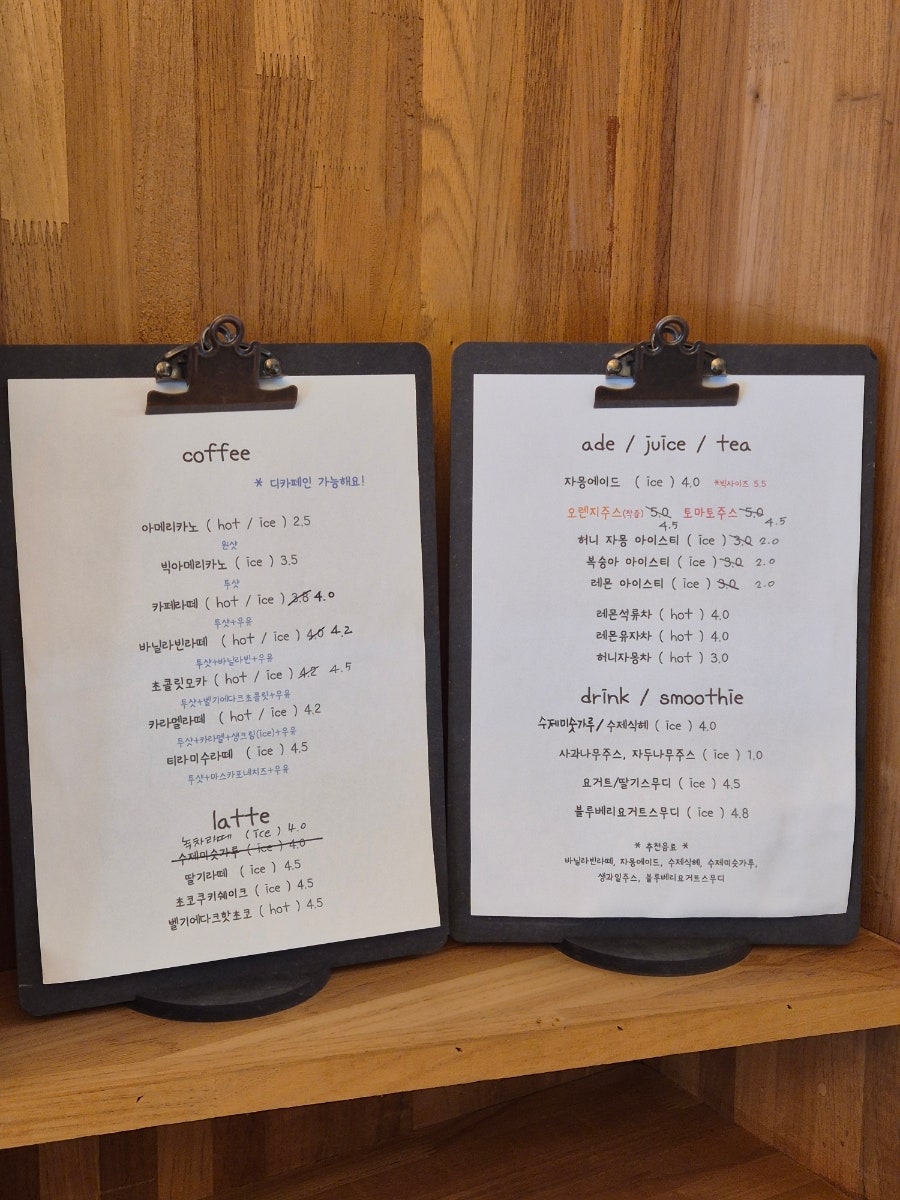 coffee
* 디카페인 가능해요!
아메리카노 ( hot / ice ) 2.5
원샷
빅아메리카노 ( ice ) 3.5
투샷
카페라떼 ( hot / ice ) 3.8 4.0
투샷+우유
바닐라빈라떼 ( hot / ice ) 4.0 4.2
투샷+바닐라빈+우유
초콜릿모카 ( hot / ice ) 4.2 4.5
투샷+벨기에다크초콜릿+우유
카라멜라떼 ( hot / ice ) 4.2
투샷+카라멜+생크림(ice)+우유
티라미수라떼 ( ice ) 4.5
투샷+마스카포네치즈+우유
latte
녹차라떼 ( ice ) 4.0
수제미숫가루 ( ice ) 4.0
딸기라떼 ( ice ) 4.5
초코쿠키쉐이크 ( ice ) 4.5
벨기에다크핫초코 ( hot ) 4.5
ade / juice / tea
자몽에이드 ( ice ) 4.0 *빅사이즈 5.5
오렌지주스(착즙) 5.0 토마토주스 5.0
4.5 4.5
허니 자몽 아이스티 ( ice ) 3.0 2.0
복숭아 아이스티 ( ice ) 3.0 2.0
레몬 아이스티 ( ice ) 3.0 2.0
레몬석류차 ( hot ) 4.0
레몬유자차 ( hot ) 4.0
허니자몽차 ( hot ) 3.0
drink / smoothie
수제미숫가루/수제식혜 ( ice ) 4.0
사과나무주스, 자두나무주스 ( ice ) 1.0
요거트/딸기스무디 ( ice ) 4.5
블루베리요거트스무디 ( ice ) 4.8
* 추천음료 *
바닐라빈라떼, 자몽에이드, 수제식혜, 수제미숫가루,
생과일주스, 블루베리요거트스무디